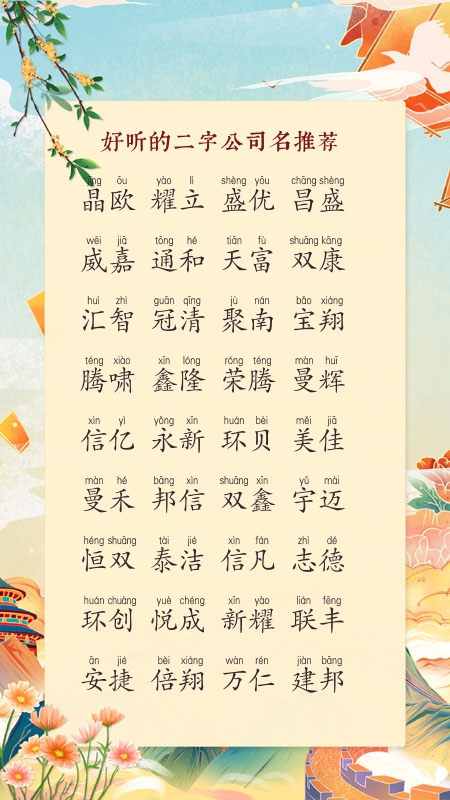 好听的二字公司名推荐
jīng ōu yào lì shèng yōu chāng shèng
晶欧 耀立 盛优 昌盛
wēi jiā tōng hé tiān fù shuāng kāng
威嘉 通和 天富 双康
huì zhì guān qīng jù nán bǎo xiáng
汇智 冠清 聚南 宝翔
téng xiào xīn lóng róng téng màn huī
腾啸 鑫隆 荣腾 曼辉
xìn yì yǒng xīn huán bèi měi jiā
信亿 永新 环贝 美佳
màn hé bāng xìn shuāng xīn yǔ mài
曼禾 邦信 双鑫 宇迈
héng shuāng tài jié xìn fán zhì dé
恒双 泰洁 信凡 志德
huán chuàng yuè chéng xīn yào lián fēng
环创 悦成 新耀 联丰
ān jié bèi xiáng wàn rén jiàn bāng
安捷 倍翔 万仁 建邦